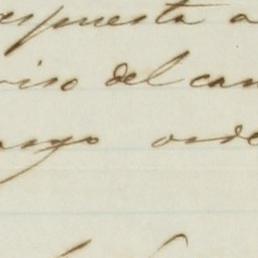 espuesta a
viso del cam
argo orde